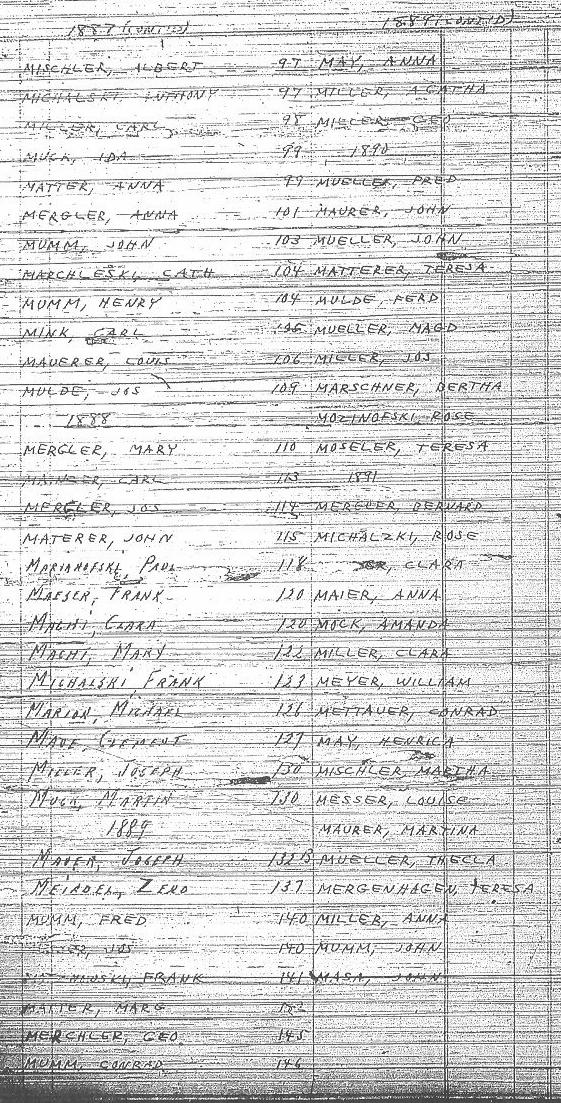 1887 (CONT'D)
MISCHLER, ALBERT 97
MICHALSKI, ANTHONY 97
MILLER, CARL 98
MUCK, IDA 99
MATTER, ANNA 99
MERGLER, ANNA 101
MUMM, JOHN 103
MARCHLESKI, CATH 104
MUMM, HENRY 104
MINK, CARL
MAUERER, LOUIS 106
MULDE, JOS 109
1888
MERGLER, MARY 110
CARL 113
MERGLER, JOS 114
MATERER, JOHN 115
MARIANOFSKI, PAUL 118
MAESER, FRANK 120
MACHT, CLARA 120
MACHT, MARY 122
MICHALSKI, FRANK 123
MARION, MICHAEL 126
CLEMENT 127
MILLER, JOSEPH 130
MUCK, MARTIN 130
1889
MAUER, JOSEPH 132
ZENO 137
MUMM, FRED 140
JOS 140
FRANK 141
MATTER, MARG
MERCHLER, GEO 145
MUMM, CONRAD 146
1889 (CONT'D)
MAY, ANNA
MILLER, AGATHA
MILLER, GEO
1890
MUELLER, FRED
MAURER, JOHN
MUELLER, JOHN
MATTERER, TERESA
MULDE, FERD
MUELLER, MAGD
MILLER, JOS
MARSCHNER, BERTHA
MOZINOFSKI, ROSE
MOSELER, TERESA
1891
MERGLER, BERNARD
MICHALZKI, ROSE
CLARA
MAIER, ANNA
MOCK, AMANDA
MILLER, CLARA
MEYER, WILLIAM
METTAUER, CONRAD
MAY, HENRICA
MISCHLER, MARTHA
MESSER, LOUISE
MAURER, MARTINA
MUELLER, THECLA
MERGENHAGEN, TERESA
MILLER, ANNA
MUMM, JOHN
MASA, JOHN